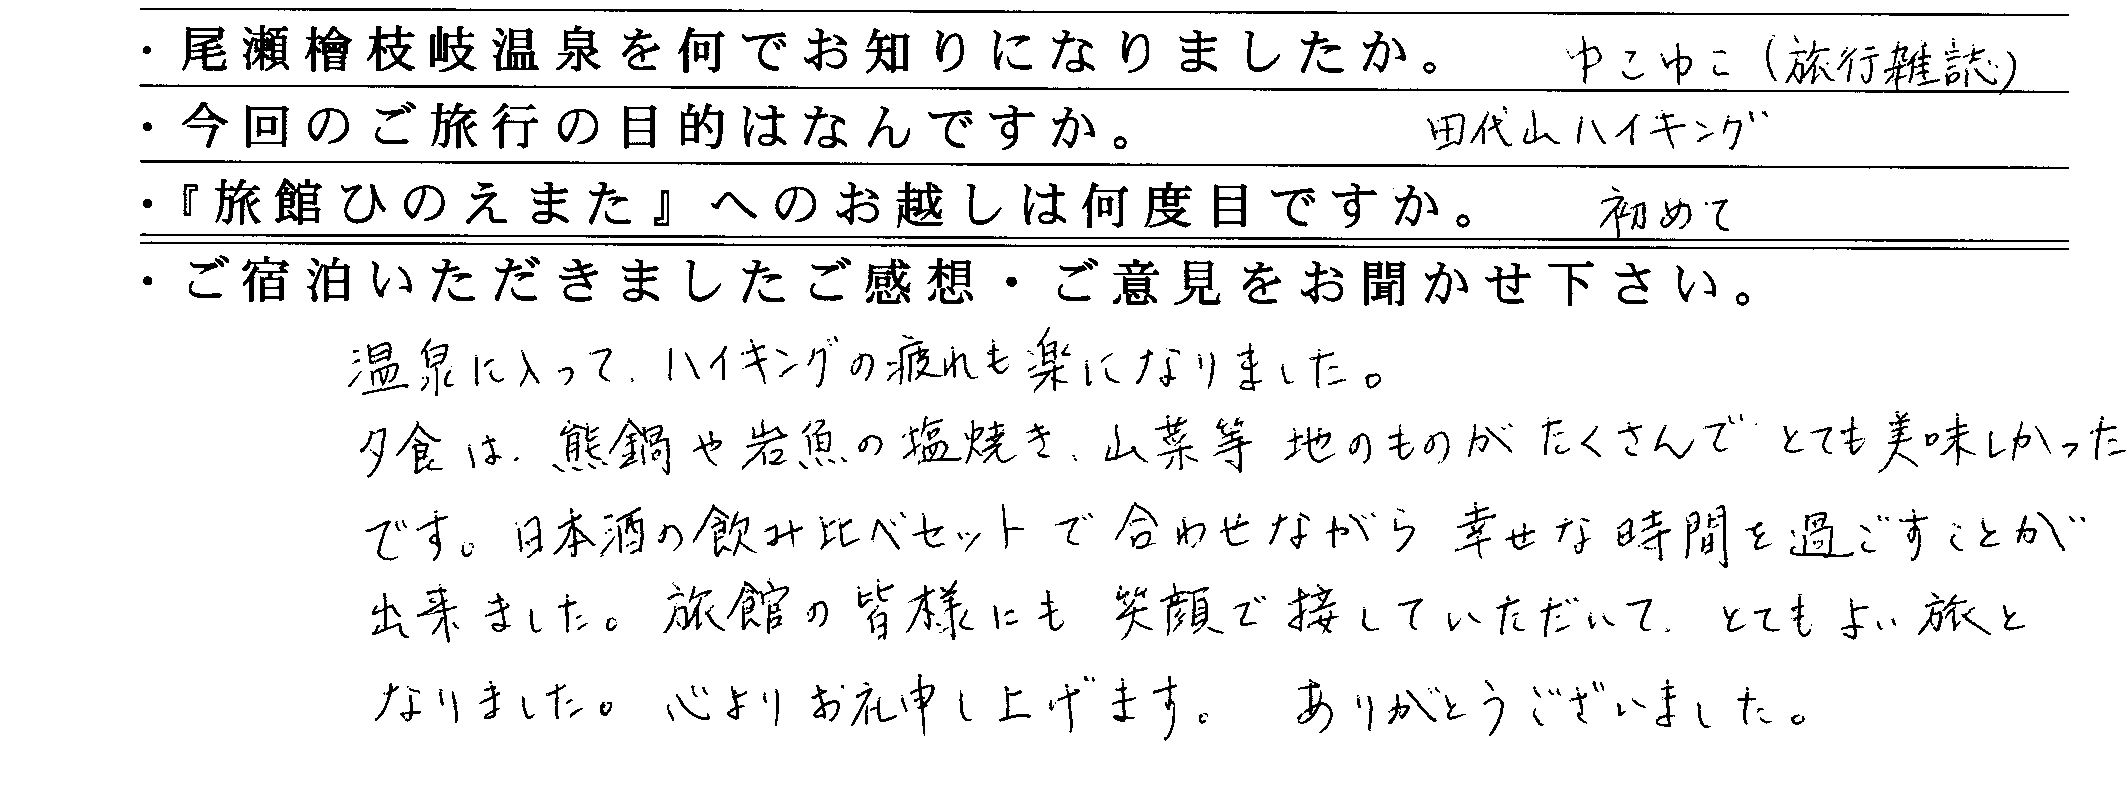 ・尾瀬檜枝岐温泉を何でお知りになりましたか。 ゆこゆこ(旅行雑誌)
・今回のご旅行の目的はなんですか。 田代山ハイキング
・『旅館ひのえまた』へのお越しは何度目ですか。 初めて
・ご宿泊いただきましたご感想・ご意見をお聞かせ下さい。
温泉に入って、ハイキングの疲れも楽になりました。
夕食は、熊鍋や岩魚の塩焼き、山菜等 地のものがたくさんで とても美味しかった
です。日本酒の飲み比べセットで合わせながら 幸せな時間を過ごすことが
出来ました。旅館の皆様にも 笑顔で接していただいて、とてもよい旅と
なりました。心よりお礼申し上げます。 ありがとうございました。